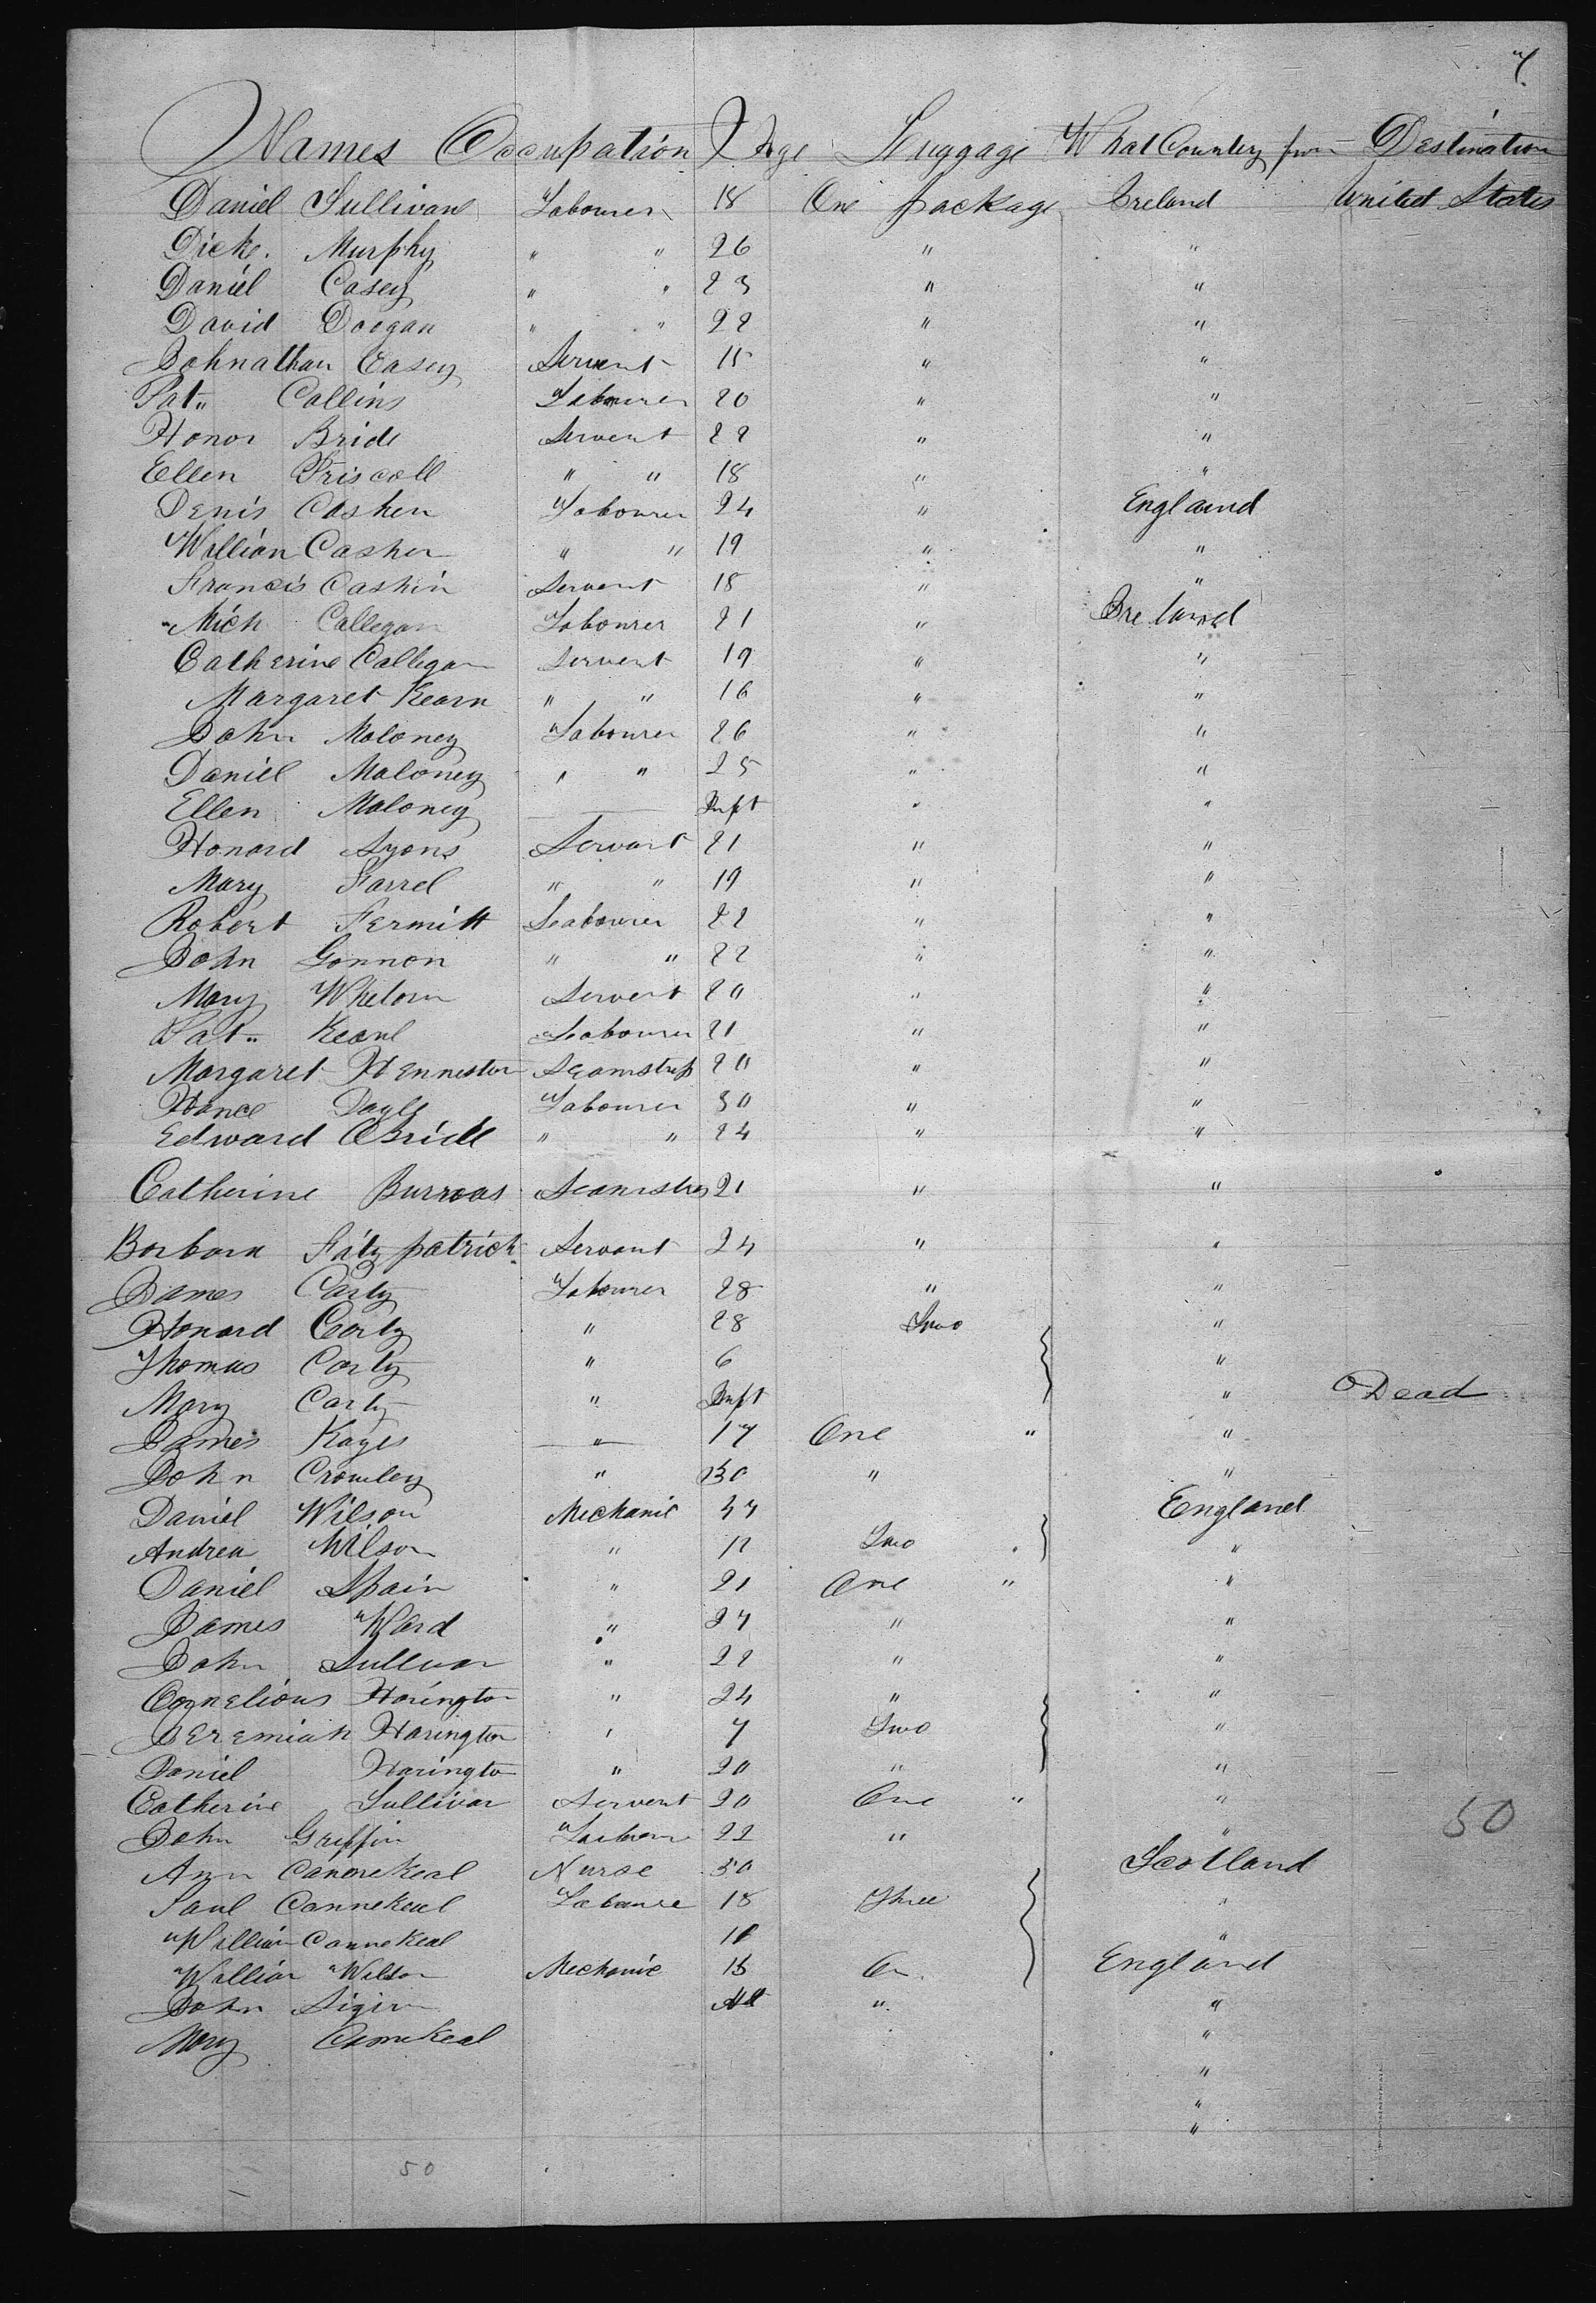 7
Names Occupation Age Luggage What Country from Destination
Daniel Sullivan Labourer 18 One package Ireland United States
Dick. Murphy " " 26 " "
Daniel Casey " " 23 " "
David Doogan " " 22 " "
Johnathan Casey Servent 15 " "
Pat" Collins Labourer 20 " "
Honor Bride Servent 22 " "
Ellen Driscoll " " 18 " "
Denis Cashen Labourer 24 " England
William Cashen " " 19 " "
Francis Cashin Servent 18 " "
Mich Callegan Labourer 21 " Ireland
Catherine Callegan Servent 19 " "
Margaret Kearn " " 16 " "
John Moloney Labourer 26 " "
Daniel Maloney " " 25 " "
Ellen Maloney Inft " "
Honord Lyons Servant 21 " "
Mary Farrel " " 19 " "
Robert Fermitt Labourer 22 " "
John Gonnon " " 22 " "
Mary Whelon Servent 20 " "
Pat" Keane Labourer 21 " "
Margaret Henneston Seamstress 20 " "
Doyle Labourer 30 " "
Edward Bride " " 24 " "
Catherine Burroas Seamstres 21 " "
Barbara Fitzpatrick Servant 24 " "
James Carty Labourer 28 " "
Honord Carty " 28 Two "
Thomas Carty " 6 "
Mary Carty " Inft " Dead
James Kayes " 17 One " "
John Crowley " 30 " "
Daniel Wilson Mechanic 47 England
Andrew Wilson " 12 Two "
Daniel Spain " 21 One " "
James Ward " 27 " "
John Sullivan " 22 " "
Cornelious Harington " 24 " "
Jeremiah Harington " 7 Two "
Daniel Harington " 20 " "
Catherine Sullivan Servent 20 One " "
John Griffin 22 " "
50
Ann Cannekeal Nurse 50 Scotland
Saul Cannekeal Labource 18 Three "
William Cannekeal "
William Wilson Mechanic On England
John "  "
Mary Cannekeal "
"
"
"
50